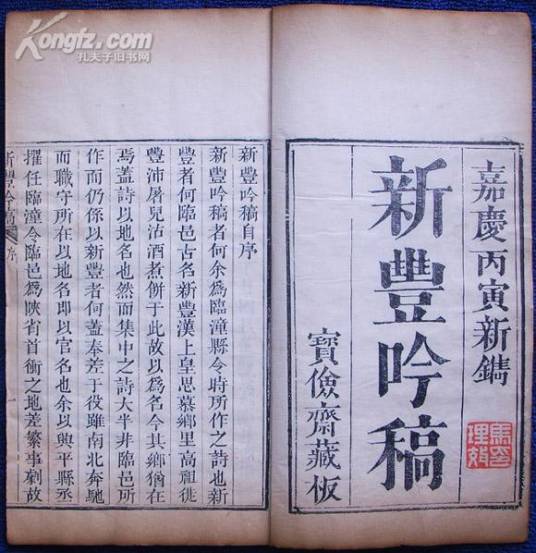 Kongfz.com
孔夫子旧书网
嘉慶丙寅新鐫
新豐吟稿
寶儉齋藏板
新豐吟稿自序
新豐吟稿者何余為臨潼縣令時所作之詩也新
豐者何臨邑古名新豐漢上皇思慕鄉里高祖徙
豐沛屠兒沽酒煮餅于此故以為名今其鄉猶在
焉蓋詩以地名也然而集中之詩大半非臨邑所
作而仍係以新豐者何蓋奉差于役雖南北奔馳
而職守所在以地名即以官名也余以興平縣丞
擢任臨潼令臨邑為陝省首衝之地差繁事劇故
新豐吟稿
序
一